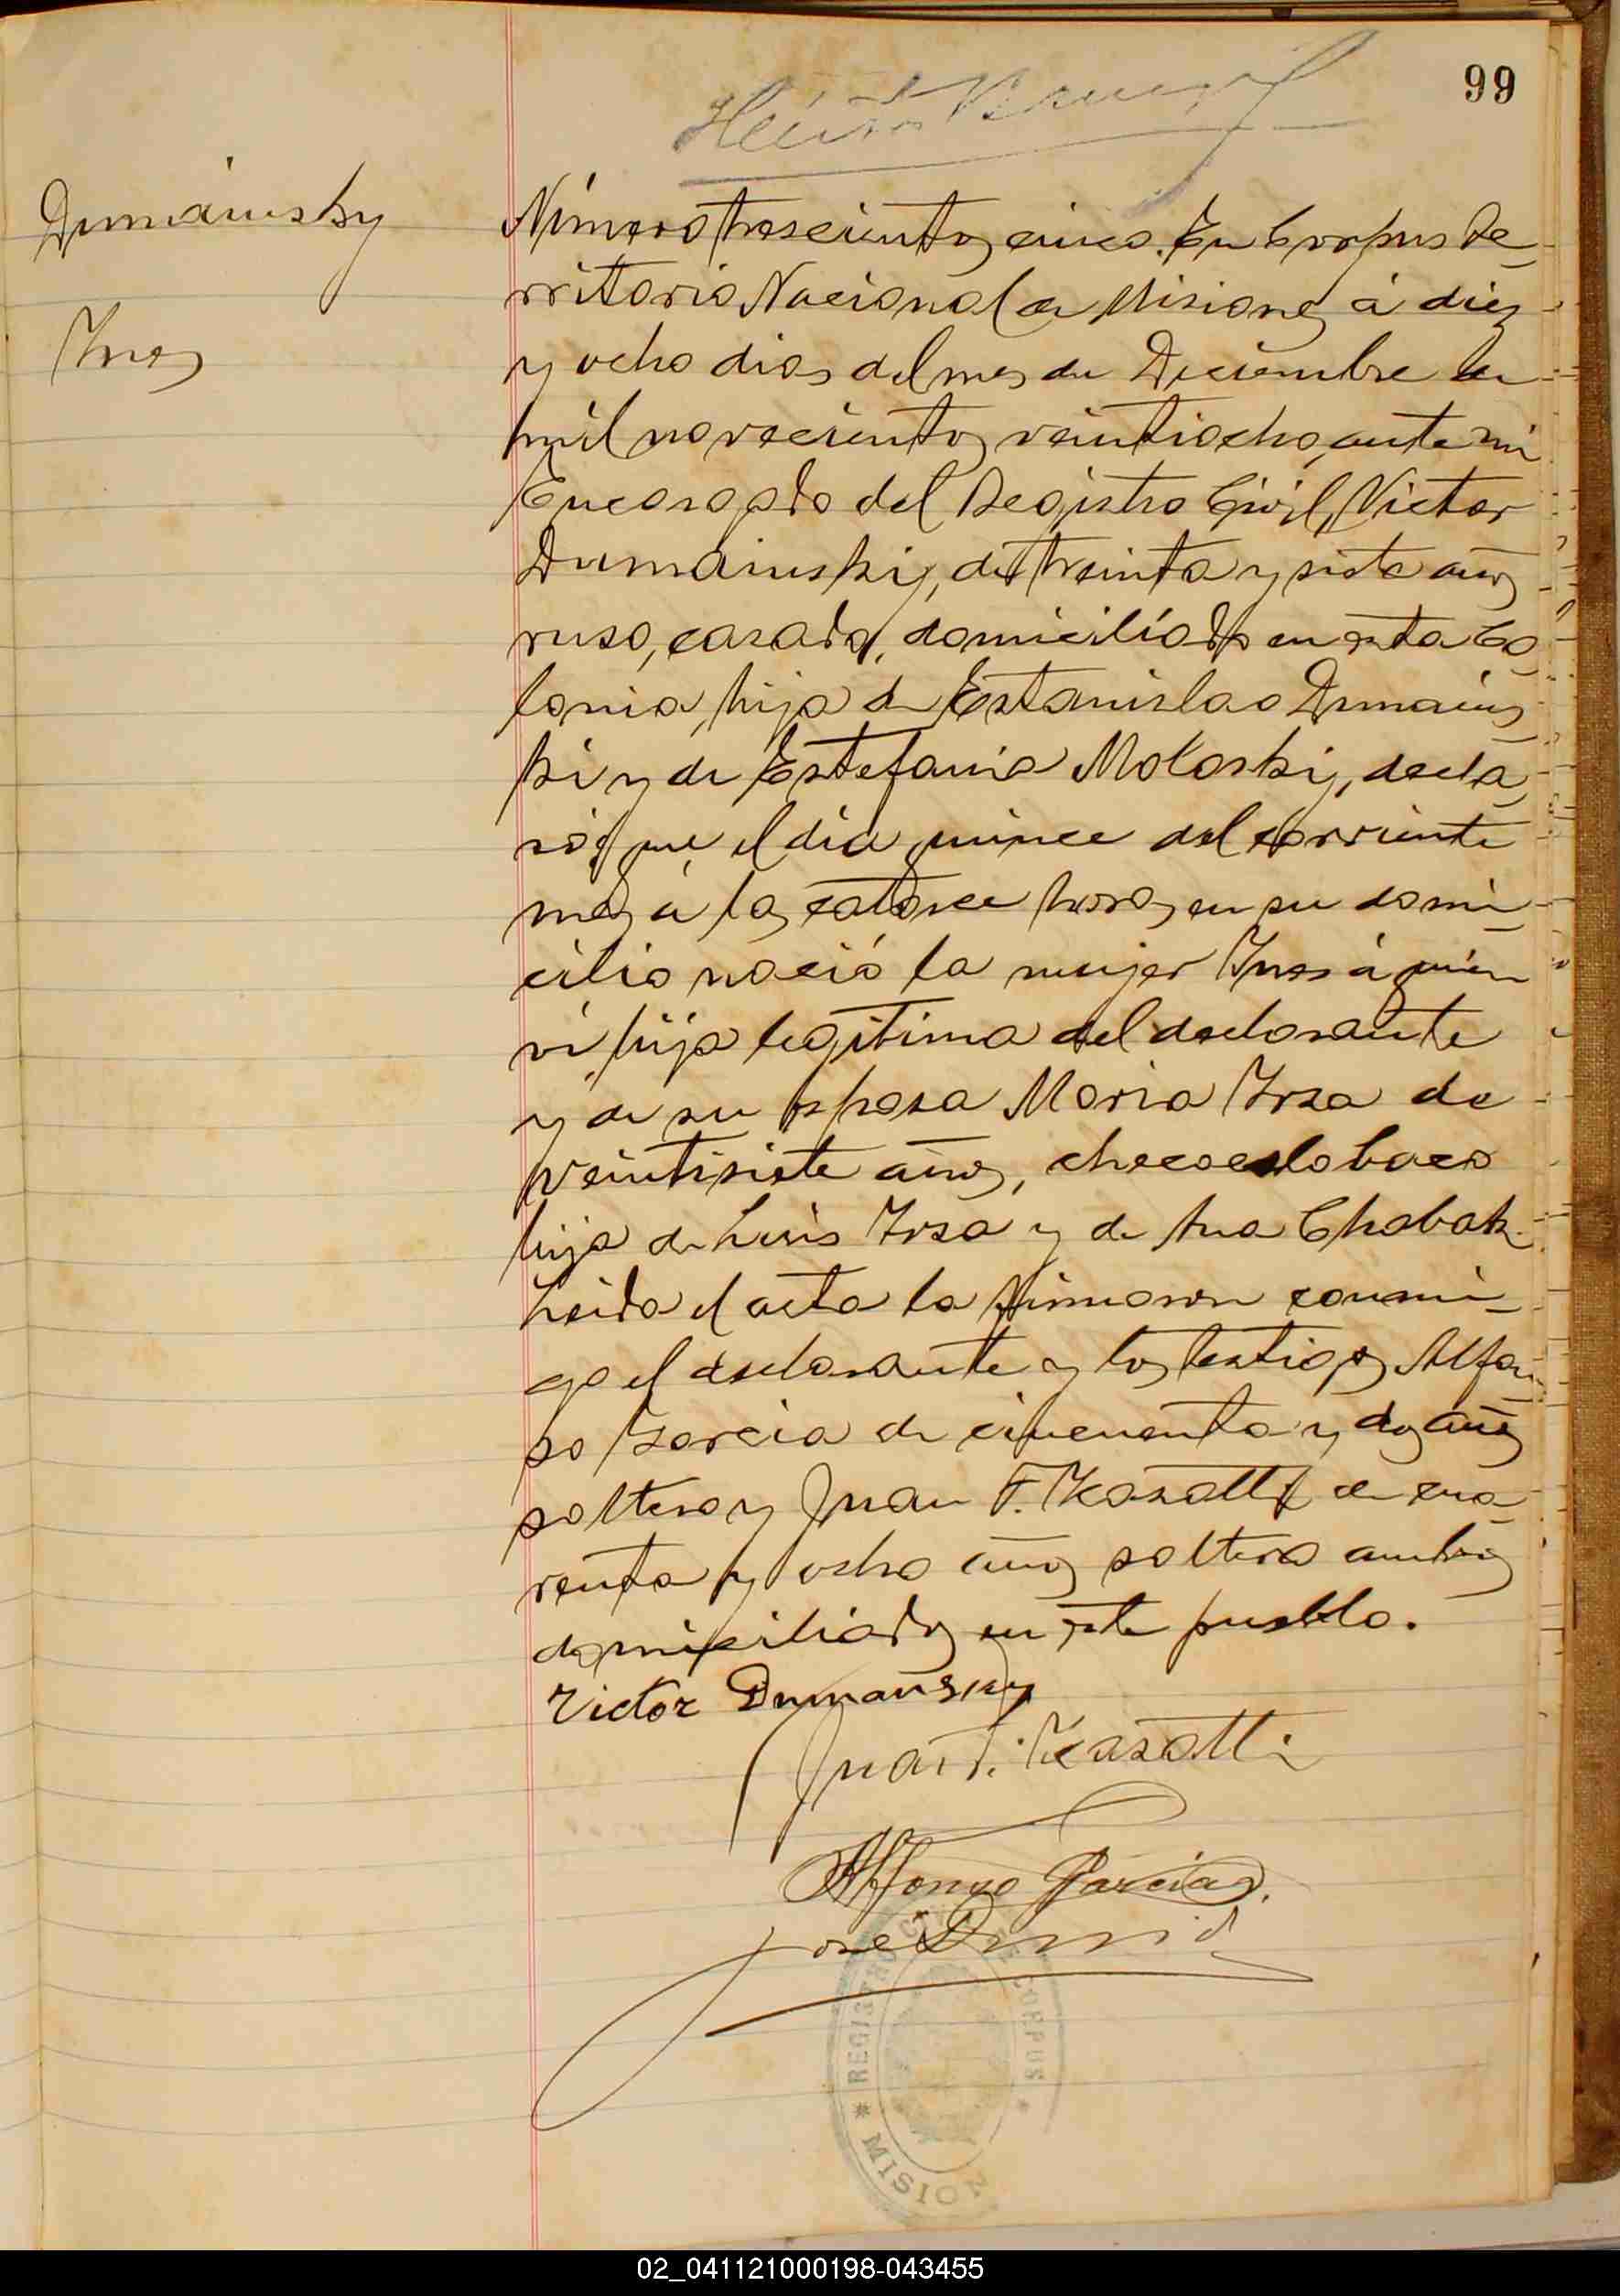 99
Dumainsky
Ines
Número trescientos cinco. En Corpus Te-
rritorio Nacional de Misiones á diez
y ocho dias del mes de Diciembre de
mil novecientos veintiocho, ante mi
Encargado del Registro Civil, Victor
Dumainski, de treinta y siete años
ruso, casado, domiciliado en esta Co-
lonia, hijo de Estanislao Dumains-
ki y de Estefania Motoski, decla-
ró; que el día quince del corriente
mes á las catorce horas en su domi-
cilio nació la mujer Ines á quien
ví, hija legitima del declarante
y de su esposa Maria Irsa de
veintisiete años, checoeslobaco
hija de Luis Irsa y de Ana Chabak.
Leida el acta la firmaron conmi-
go el declarante y los testigos Alfon-
so Garcia de cincuenta y dos años
soltero y Juan F. Kasatti de cua-
renta y ocho años soltero ambos
domiciliados en este pueblo.
Victor Dumansky
Juan F. Kasatti
Alfonso Garcia
José
REGISTRO CORPUS
* MISION
02_041121000198-043455